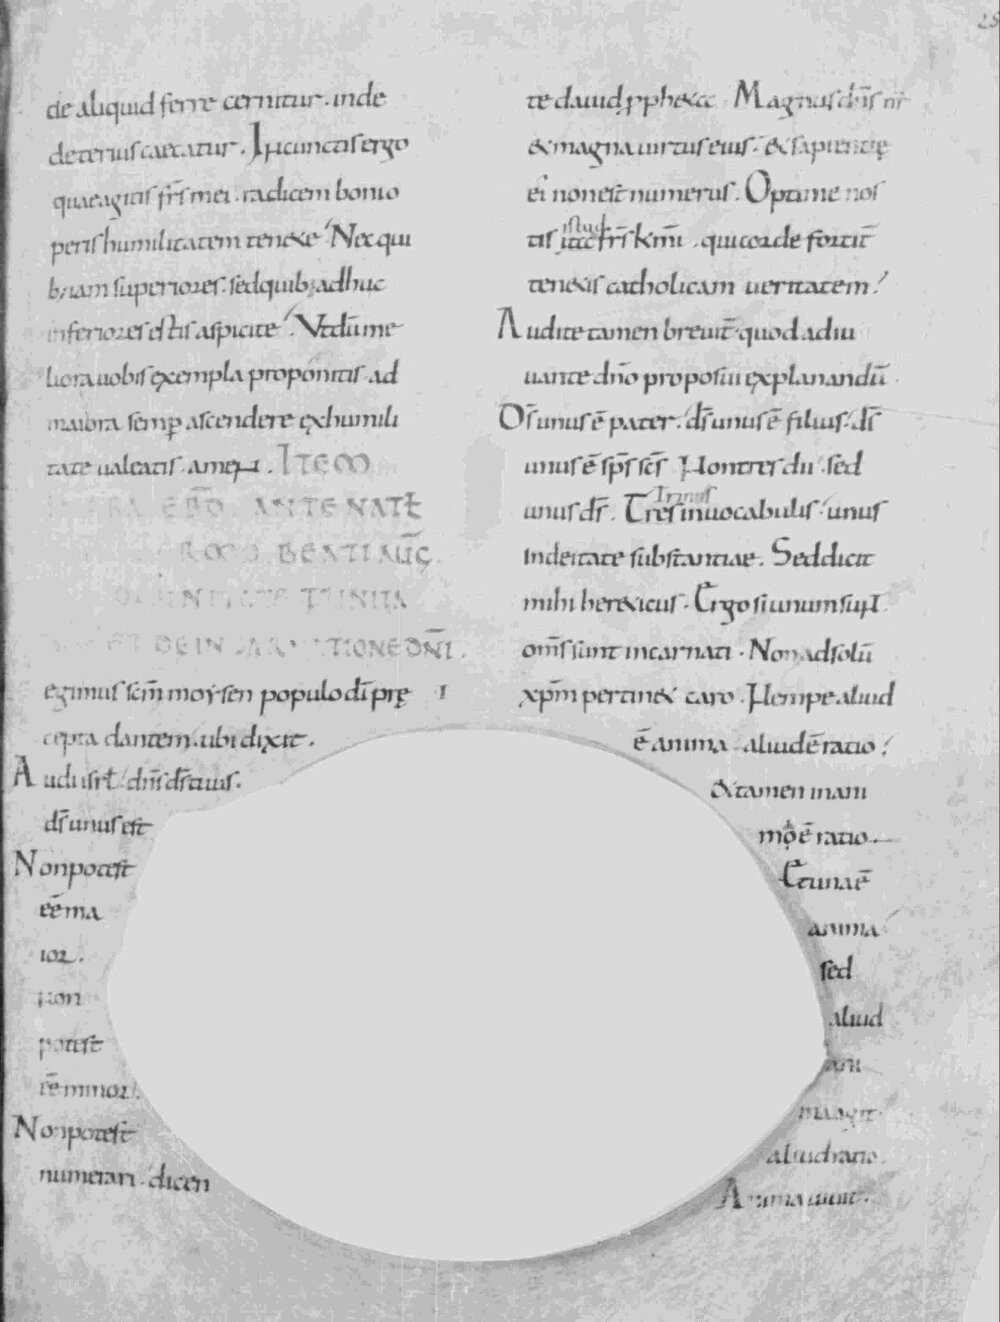 28
de aliquid ferre cernitur. inde
deterius carcatur. In cunctis ergo
quae agitis fr̄s mei. radicem boni o
peris humilitatem tenete. Nec qui
b; iam superiores. sed quib; adhuc
inferiores estis aspicite. Vt dū me
liora uobis exempla proponitis. ad
maiora semp̱ ascendere ex humili
tate ualeatis. amen. ITEM
EBD̄ ANTE NAT̄
BEATI AUḠ
TRINITA
ET DE INCARNATIONE DN̄I.
egimus sc̄m moysen populo dī prę
cepta dantem. ubi dixit.
Audi isrł. dn̄s ds̄ tuus.
ds̄ unus est
Non potest
eē ma
ior.
non
potest
eē minor.
Non potest
numerari. dicen
te dauid p̱pheta. Magnus dn̄s nr̄
& magna uirtus eius. & sapientię
ei non est numerus. Optime nos
istud
tis fr̄s km̄i. qui corde fortit̄
tenetis catholicam ueritatem.
Audite tamen breuit̄. quod adiu
uante dn̄o proposui explanandū.
Ds̄ unus ē pater. ds̄ unus ē filius. ds̄
unus ē sp̄s sc̄s. Non tres dii. sed
unus ds̄. Tres in uocabulis. unus
in deitate substantiae. Sed dicit
mihi hereticus. Ergo si unum sunt.
om̄s sunt incarnati. Non ad solū
xp̄m pertinet caro. Nempe aliud
ē anima. aliud ē ratio.
& tamen in ani
ma ē ratio.
Et una ē
anima
sed
aliud
ani
ma agit
aliud ratio.
Anima uiuit.